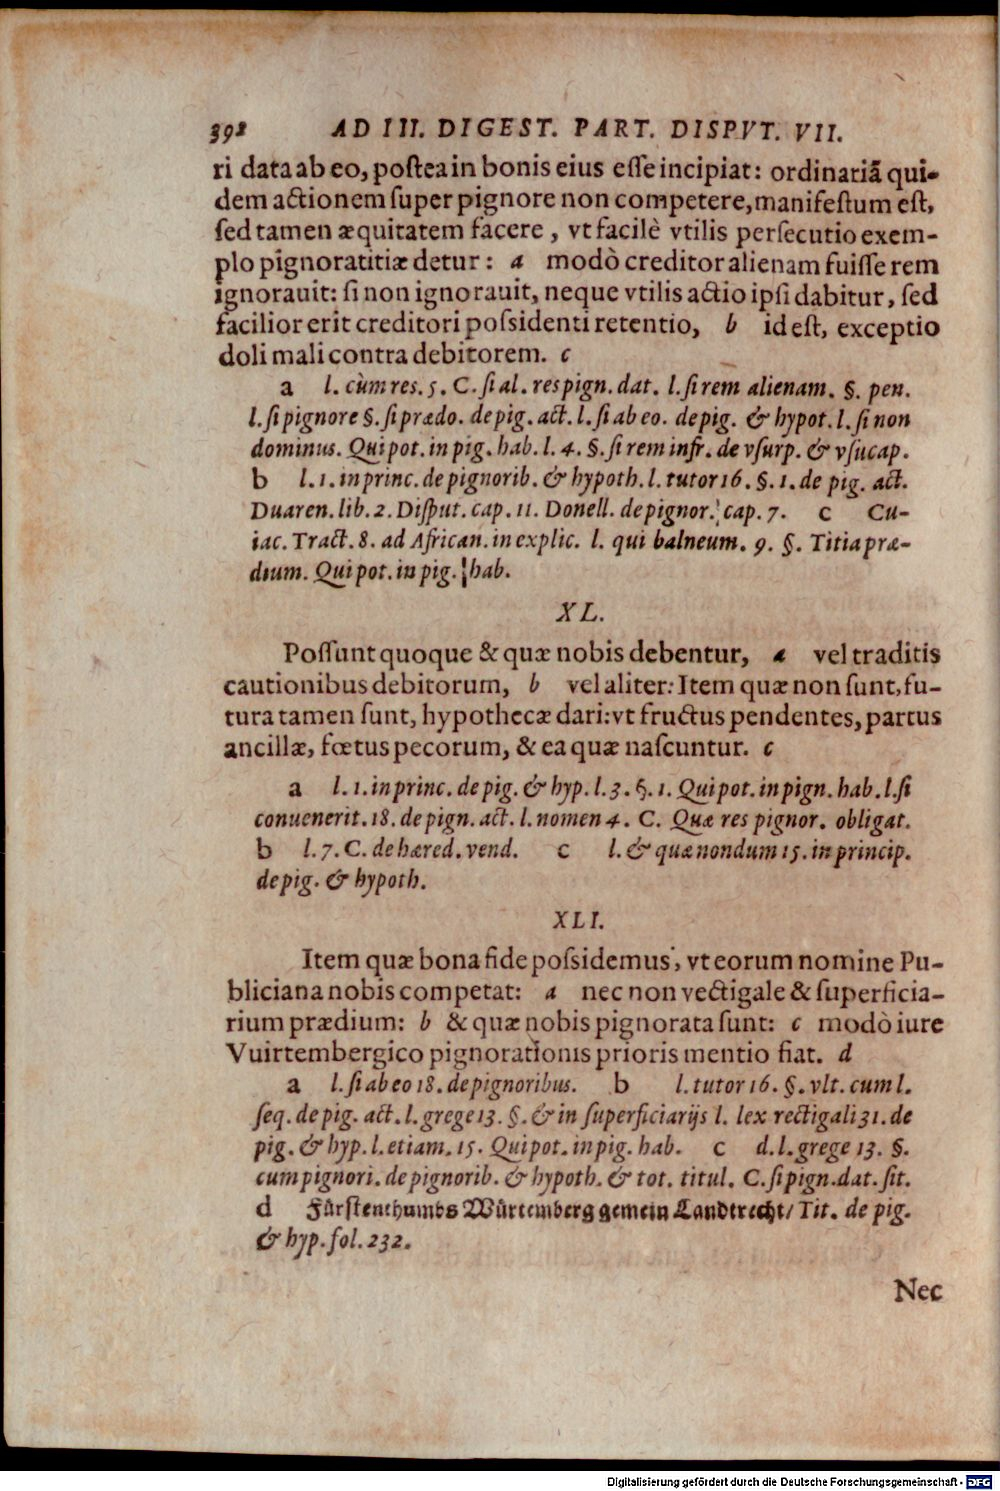 392 AD III. DIGEST. PART. DISPVT. VII.
ri data ab eo, postea in bonis eius esse incipiat: ordinariã qui-
dem actionem super pignore non competere, manifestum est,
sed tamen æquitatem facere, vt facilè vtilis persecutio exem-
plo pignoratitiæ detur: a modò creditor alienam fuisse rem
ignorauit: si non ignorauit, neque vtilis actio ipsi dabitur, sed
facilior erit creditori possidenti retentio, b id est, exceptio
doli mali contra debitorem. c
a l. cùm res. 5. C. si al. res pign. dat. l. si rem alienam. §. pen.
l. si pignore §. si prædo. de pig. act. l. si ab eo. de pig. & hypot. l. si non
dominus. Qui pot. in pig. hab. l. 4. §. si rem infr. de vsurp. & vsucap.
b l. 1. in princ. de pignorib. & hypoth. l. tutor 16. §. 1. de pig. act.
Duaren. lib. 2. Disput. cap. 11. Donell. de pignor. cap. 7. c Cu-
iac. Tract. 8. ad African. in explic. l. qui balneum. 9. §. Titia præ-
dium. Qui pot. in pig. hab.
XL.
Possunt quoque & quæ nobis debentur, a vel traditis
cautionibus debitorum, b vel aliter: Item quæ non sunt, fu-
tura tamen sunt, hypothecæ dari: vt fructus pendentes, partus
ancillæ, fœtus pecorum, & ea quæ nascuntur. c
a l. 1. in princ. de pig. & hyp. l. 3. §. 1. Qui pot. in pign. hab. l. si
conuenerit. 18. de pign. act. l. nomen 4. C. Quæ res pignor. obligat.
b l. 7. C. de hæred. vend. c l. & quæ nondum 15. in princip.
de pig. & hypoth.
XLI.
Item quæ bona fide possidemus, vt eorum nomine Pu-
bliciana nobis competat: a nec non vectigale & superficia-
rium prædium: b & quæ nobis pignorata sunt: c modò iure
Vuirtembergico pignorationis prioris mentio fiat. d
a l. si ab eo 18. de pignoribus. b l. tutor 16. §. vlt. cum l.
seq. de pig. act. l. grege 13. §. & in superficiarijs l. lex rectigali 31. de
pig. & hyp. l. etiam. 15. Qui pot. in pig. hab. c d. l. grege 13. §.
cum pignori. de pignorib. & hypoth. & tot. titul. C. si pign. dat. sit.
d Fürstenthumbs Würtemberg gemein Landtrecht/ Tit. de pig.
& hyp. fol. 232.
Nec
Digitalisierung gefördert durch die Deutsche Forschungsgemeinschaft - DFG